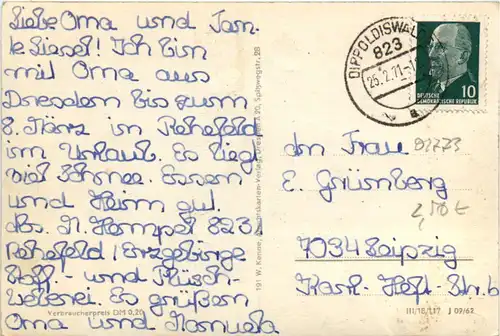 Liebe Oma und Tan-
te Liesel! Ich bin
mit Oma aus
Dresden bis zum
8. März in Rehefeld
im Urlaub. Es liegt
viel Schnee. Essen
und Heim gut.
Abs. M. Hempel 8231
Rehefeld / Erzgebirge
Stoff- und Plüsch-
weberei Es grüßen
Oma und Manuela
Verbraucherpreis DM 0,20
191 W. Kenne, Dresden A 20, Spitzwegstr. 28
DIPPOLDISWALDE
823
25.2.71
a
10
DEUTSCHE
DEMOKRATISCHE REPUBLIK
An Frau
E. Grünberg
2,50 €
7034 Leipzig
III/18/117 J 09/62